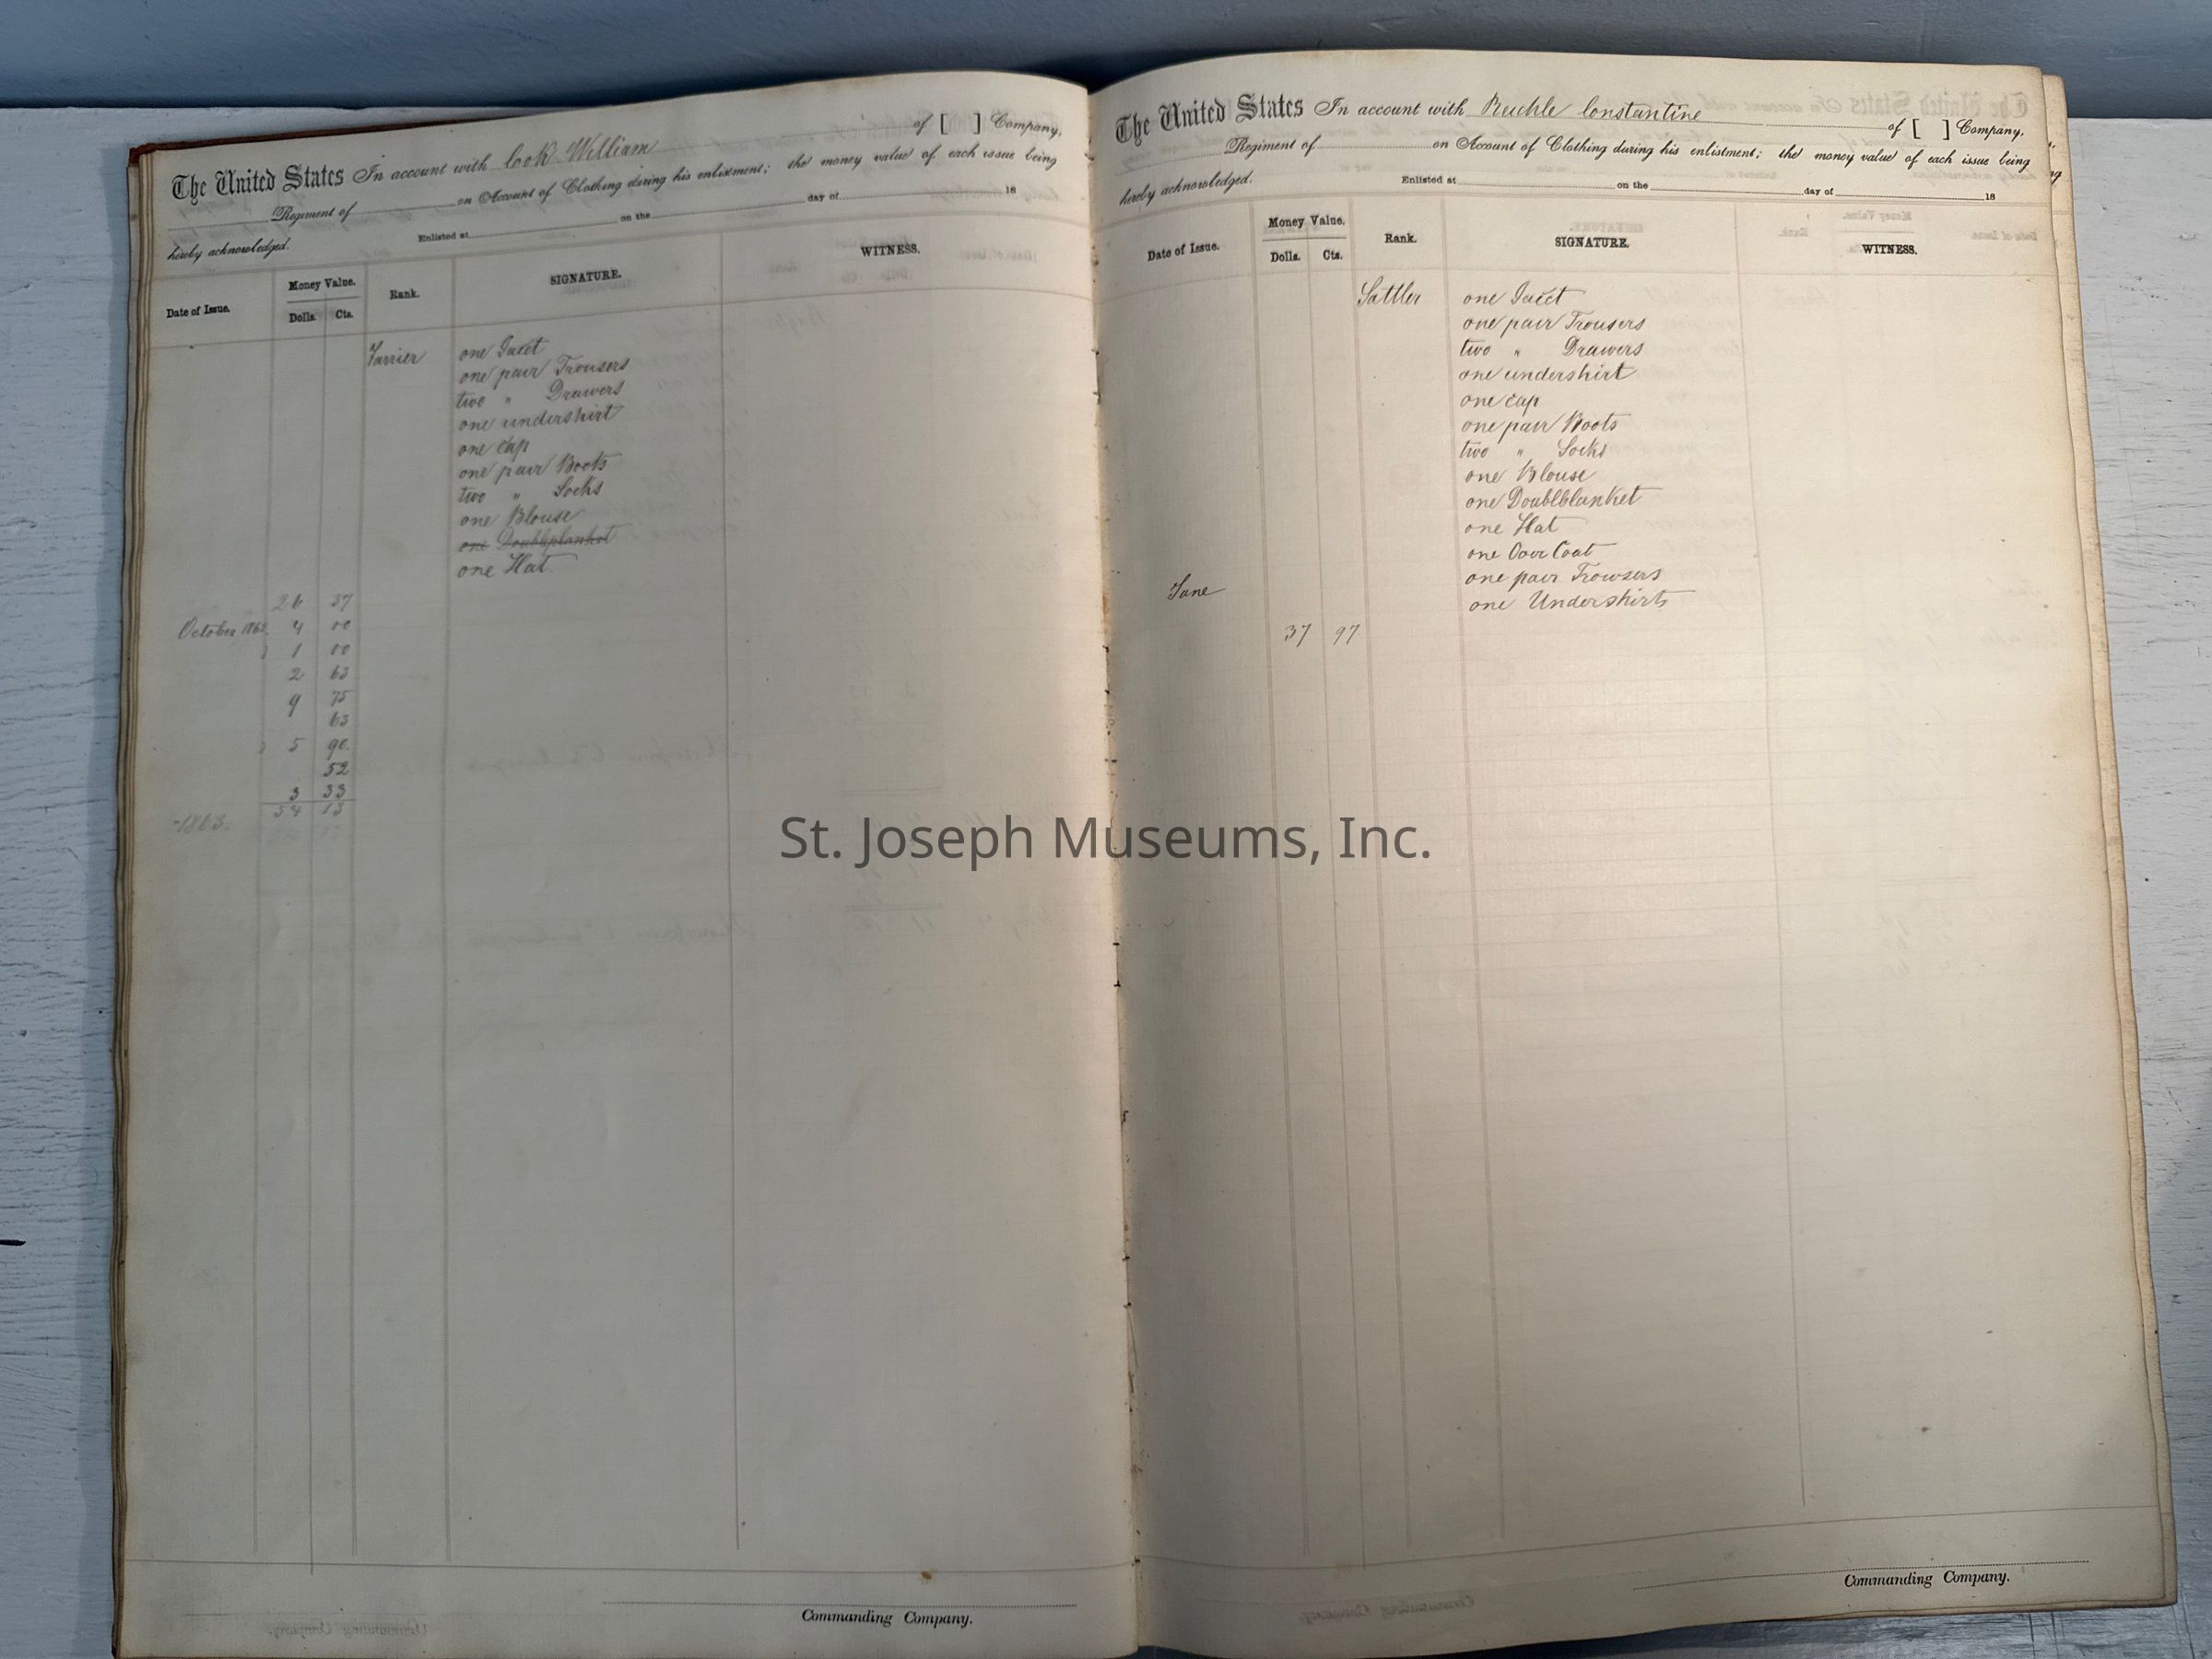 The United States In account with Cook William of [ ] Company,
Regiment of on Account of Clothing during his enlistment; the money value of each issue being
hereby acknowledged. Enlisted at on the day of 18
Date of Issue. Money Value. Dolls. Cts. Rank. SIGNATURE. WITNESS.
Farrier one Jacet
one pair Trousers
two " Drawers
one undershirt
one cap
one pair Boots
two " Socks
one Blouse
one Doubleplanket
one Hat
26 37
October 1863. 4 00
1 00
2 63
9 75
63
5 90
52
3 33
54 13
1863.
Commanding Company.
The United States In account with Constantine of [ ] Company,
Regiment of on Account of Clothing during his enlistment; the money value of each issue being
hereby acknowledged. Enlisted at on the day of 18
Date of Issue. Money Value. Dolls. Cts. Rank. SIGNATURE. WITNESS.
Sattler one Jacet
one pair Trousers
two " Drawers
one undershirt
one cap
one pair Boots
two " Socks
one Blouse
one Doublblanket
one Hat
one Over Coat
one pair Trowsers
June one Undershirts
37 97
Commanding Company.
St. Joseph Museums, Inc.